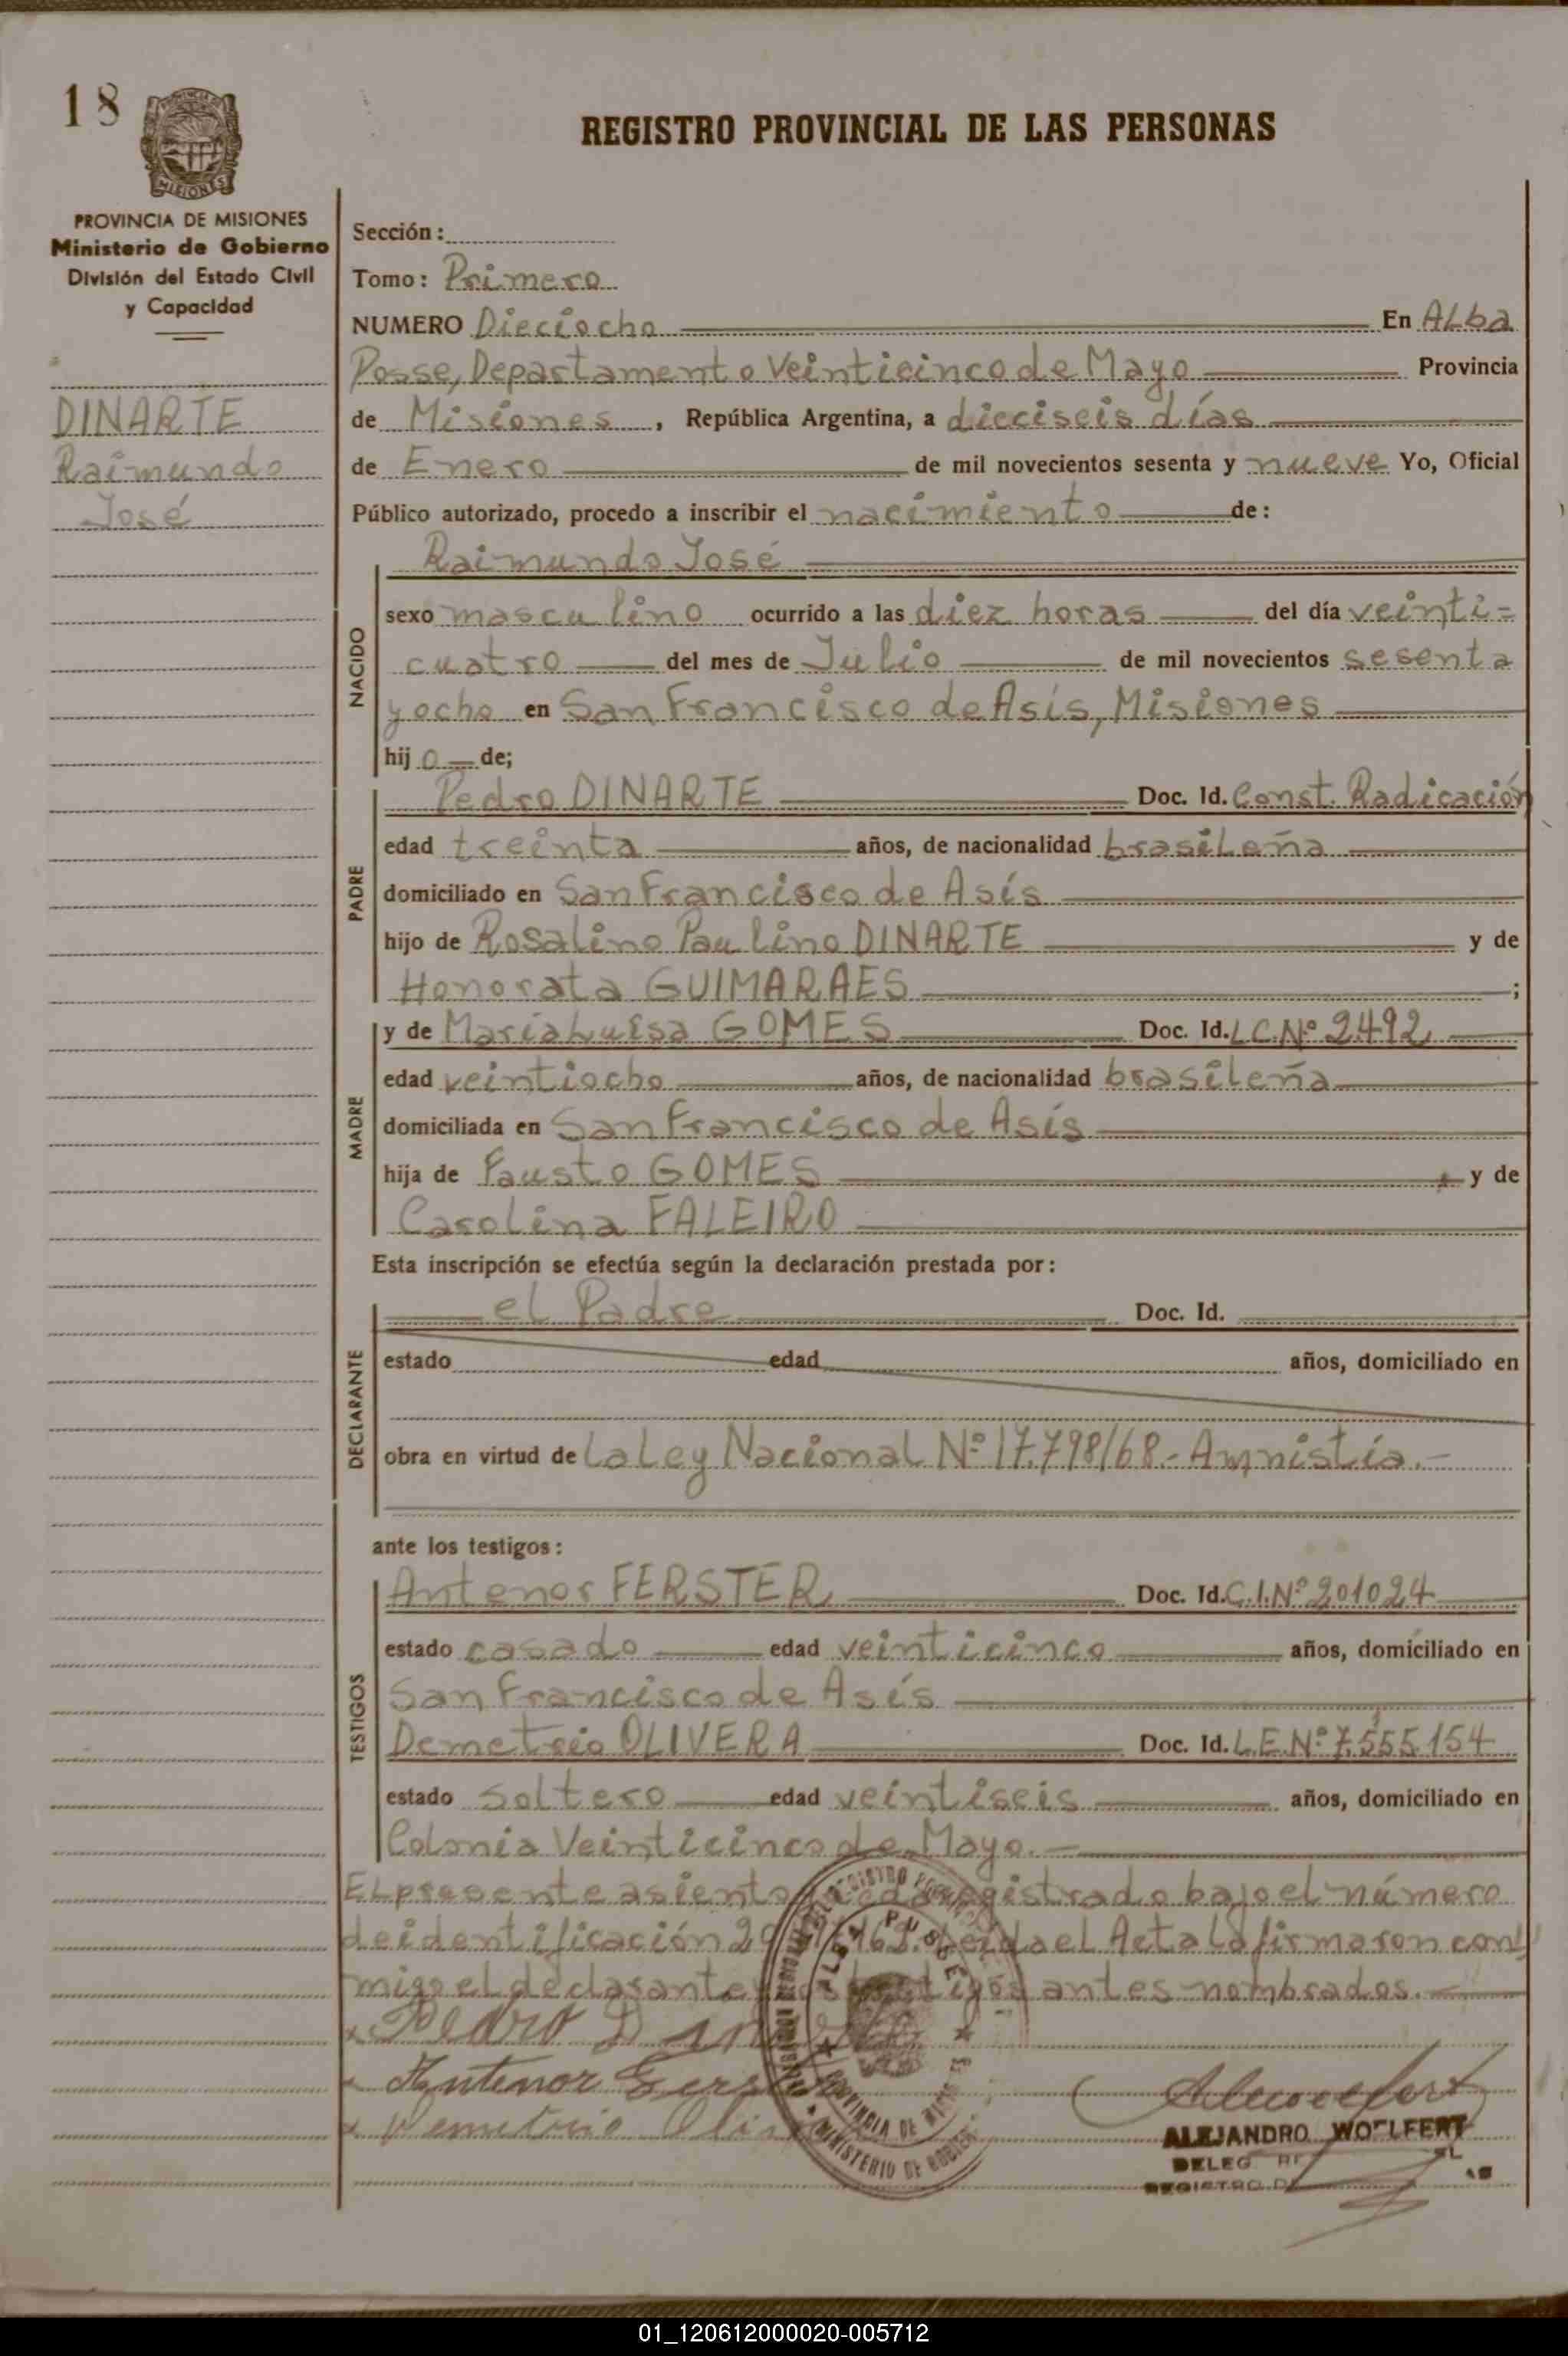 18
PROVINCIA DE MISIONES
Ministerio de Gobierno
División del Estado Civil
y Capacidad
DINARTE
Raimundo
José
REGISTRO PROVINCIAL DE LAS PERSONAS
Sección:
Tomo: Primero
NUMERO Dieciocho En ALba
Posse, Departamento Veinticinco de Mayo Provincia
de Misiones, República Argentina, a dieciseis días
de Enero de mil novecientos sesenta y nueve Yo, Oficial
Público autorizado, procedo a inscribir el nacimiento de:
NACIDO
Raimundo José
sexo masculino ocurrido a las diez horas del día veinti=
cuatro del mes de Julio de mil novecientos sesenta
y ocho en San Francisco de Asís, Misiones
hijo de;
PADRE
Pedro DINARTE Doc. Id. Const. Radicación
edad treinta años, de nacionalidad brasileña
domiciliado en San Francisco de Asís
hijo de Rosalino Paulino DINARTE y de
Honorata GUIMARAES ;
MADRE
y de María Luisa GOMES Doc. Id. L.C.Nº 2.492
edad veintiocho años, de nacionalidad brasileña
domiciliada en San Francisco de Asís
hija de Fausto GOMES y de
Carolina FALEIRO
Esta inscripción se efectúa según la declaración prestada por:
DECLARANTE
el Padre Doc. Id.
estado edad años, domiciliado en
obra en virtud de La Ley Nacional Nº 17.798/68.- Amnistía.-
ante los testigos:
TESTIGOS
Antenor FERSTER Doc. Id. C.I.Nº 201024
estado casado edad veinticinco años, domiciliado en
San Francisco de Asís
Demetrio OLIVERA Doc. Id. L.E.Nº 7.555.154
estado Soltero edad veintiseis años, domiciliado en
Colonia Veinticinco de Mayo.-
El presente asiento registrado bajo el número
de identificación Leída el Acta la firmaron con
migo el declarante testigos antes nombrados.-
Pedro
Antenor
Demetrio
ALBA POSSE
PROVINCIA DE
MINISTERIO DE
ALEJANDRO WOELFERT
DELEG
REGISTRO
01_120612000020-005712